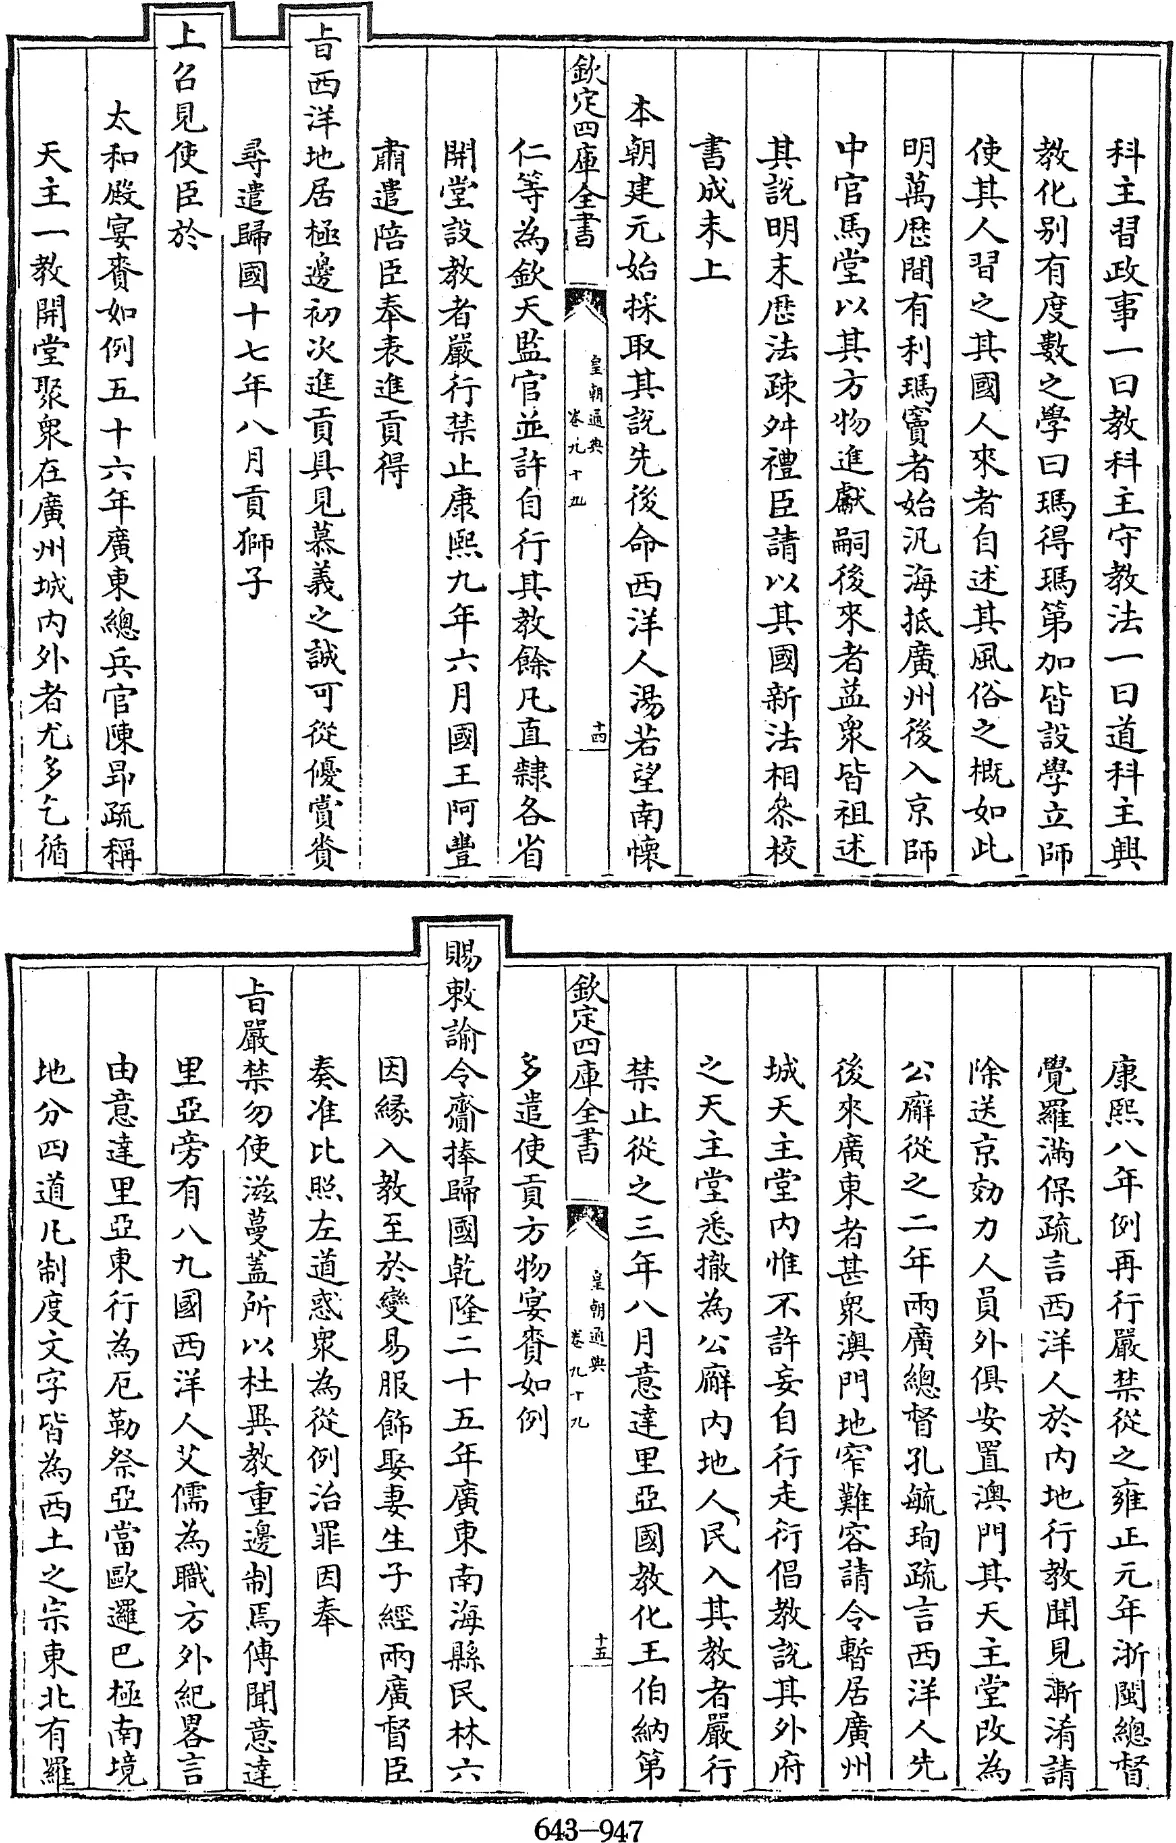 科主習政事一曰教科主守教法一曰道科主興
教化别有度數之學曰瑪得瑪第加皆設學立師
使其人習之其國人來者自述其風俗之概如此
明萬厯間有利瑪竇者始汎海抵廣州後入京師
中官馬堂以其方物進獻嗣後來者葢衆皆祖述
其說明末厯法疎舛禮臣請以其國新法相叅校
書成未上
本朝建元始採取其說先後命西洋人湯若望南懷
欽定四庫全書
皇朝通典
卷九十九
十四
仁等為欽天監官並許自行其教餘凡直隸各省
開堂設教者嚴行禁止康熙九年六月國王阿豐
肅遣陪臣奉表進貢得
上㫖西洋地居極邊初次進貢具見慕義之誠可從優賞賚
尋遣歸國十七年八月貢獅子
上召見使臣於
太和殿宴賚如例五十六年廣東總兵官陳昻疏稱
天主一教開堂聚衆在廣州城內外者尤多乞循
康熙八年例再行嚴禁從之雍正元年浙閩總督
覺羅滿保疏言西洋人於内地行教聞見漸淆請
除送京効力人員外俱安置澳門其天主堂改為
公廨從之二年兩廣總督孔毓珣疏言西洋人先
後來廣東者甚衆澳門地窄難容請令暫居廣州
城天主堂内惟不許妄自行走衍倡教說其外府
之天主堂悉撤為公廨内地人民入其教者嚴行
禁止從之三年八月意達里亞國教化王伯納第
欽定四庫全書
皇朝通典
卷九十九
十五
多遣使貢方物宴賚如例
賜敕諭令齎捧歸國乾隆二十五年廣東南海縣民林六
因緣入教至於變易服飾娶妻生子經兩廣督臣
奏准比照左道惑衆為從例治罪因奉
上㫖嚴禁勿使滋蔓蓋所以杜異教重邊制焉傳聞意達
里亞旁有八九國西洋人艾儒為職方外紀畧言
由意達里亞東行為厄勒祭亞當歐邏巴極南境
地分四道凡制度文字皆為西土之宗東北有羅
643-947